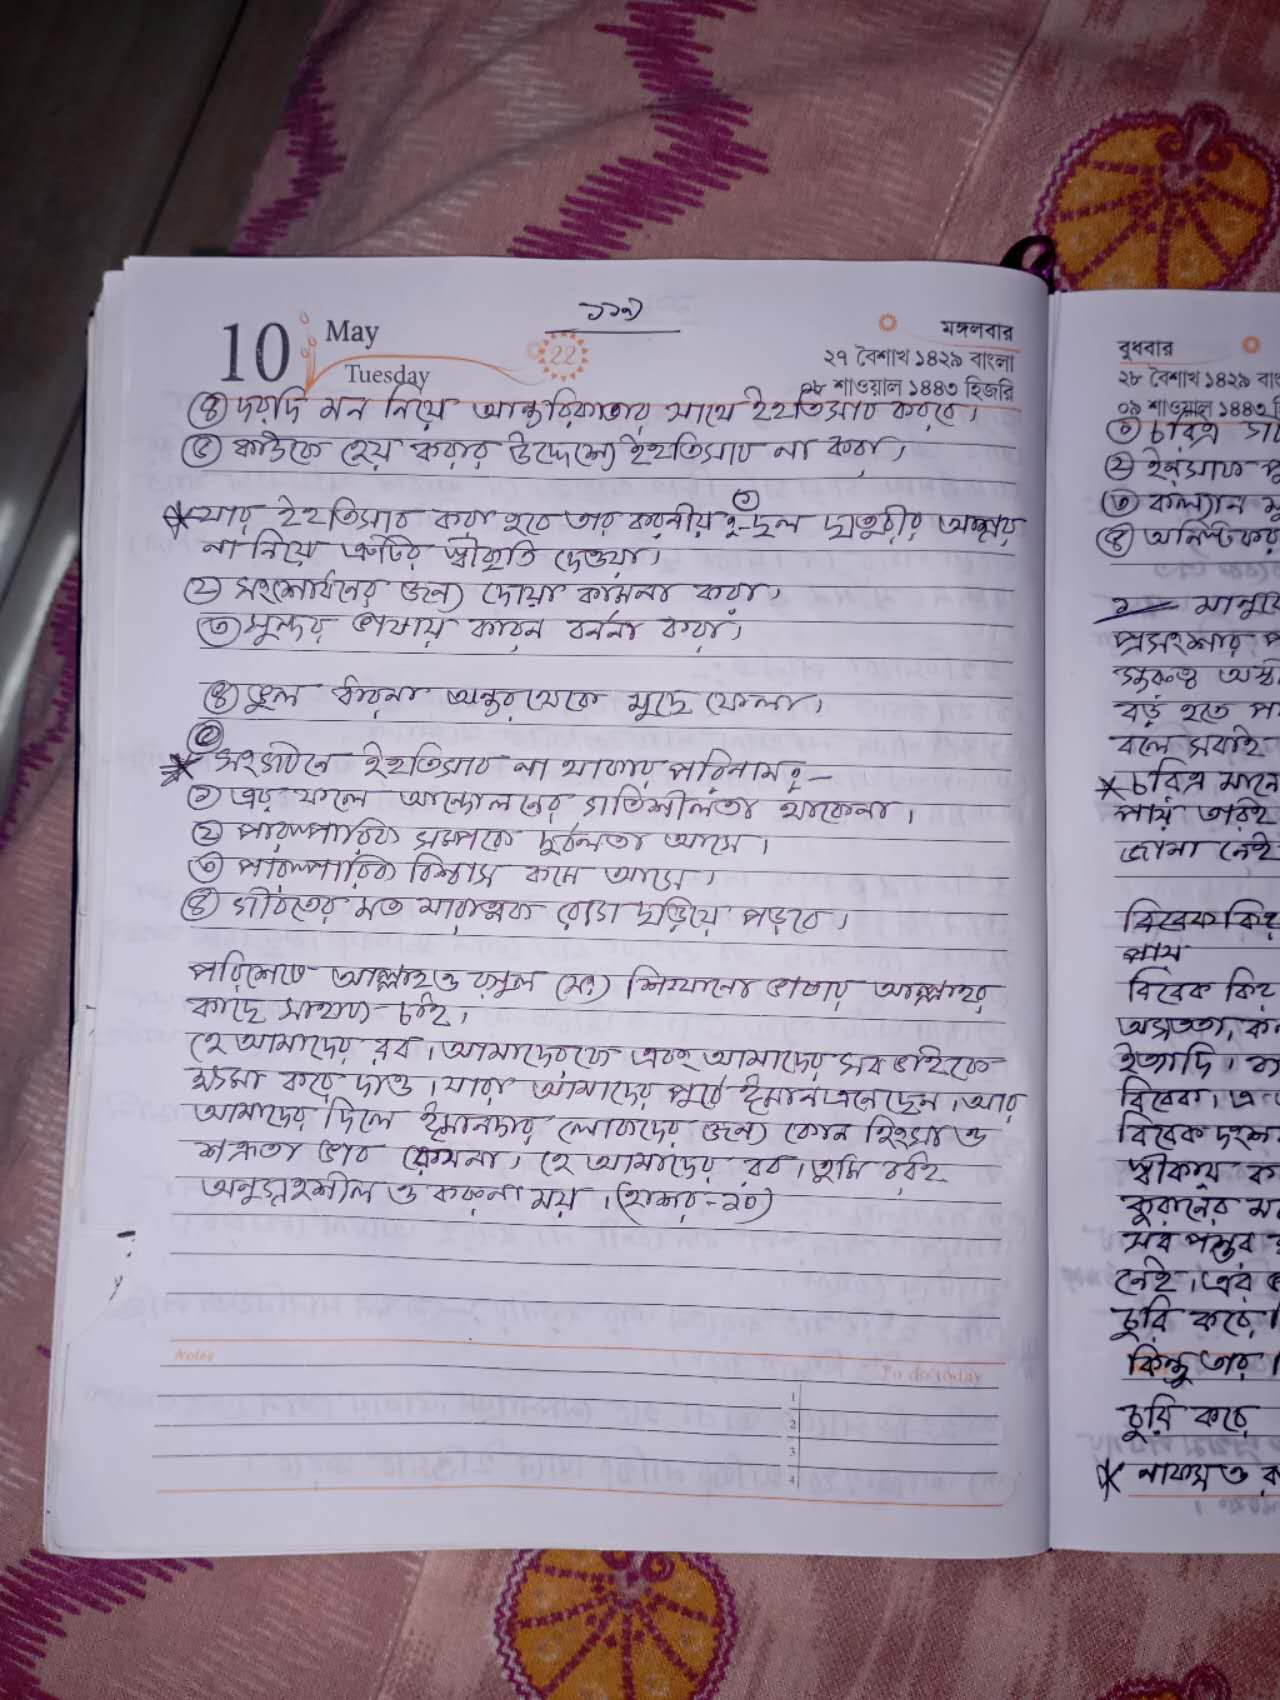 ১১৯
10 May
Tuesday
22
মঙ্গলবার
২৭ বৈশাখ ১৪২৯ বাংলা
০৮ শাওয়াল ১৪৪৩ হিজরি
(৪) দরদি মন নিয়ে আন্তরিকতার সাথে ইহতিসাব করবে।
(৫) কাউকে হেয় করার উদ্দেশ্যে ইহতিসাব না করা।
* যার ইহতিসাব করা হবে তার করনীয় ঃ- (১) ছল চাতুরীর আশ্রয়
না নিয়ে ত্রুটির স্বীকৃতি দেওয়া।
(২) সংশোধনের জন্য দোয়া কামনা করা।
(৩) সুন্দর ভাষায় কারন বর্ননা করা।
(৪) ভুল ধারনা অন্তর থেকে মুছে ফেলা।
(৫)
* সংগঠনে ইহতিসাব না থাকার পরিনাম ঃ-
(১) এর ফলে আন্দোলনের গতিশীলতা থাকেনা।
(২) পারস্পারিক সম্পর্কে দুর্বলতা আসে।
(৩) পারস্পারিক বিশ্বাস কমে আসে।
(৪) গীবতের মত মারাত্মক রোগ ছড়িয়ে পড়বে।
পরিশেষে আল্লাহ ও রসুল (সঃ) শিখানো ভাষায় আল্লাহর
কাছে সাহায্য চাই।
হে আমাদের রব। আমাদেরকে এবং আমাদের সব ভাইকে
ক্ষমা করে দাও। যারা আমাদের পূর্বে ঈমান এনেছেন। আর
আমাদের দিলে ঈমানদার লোকদের জন্য কোন হিংসা ও
শত্রুতা ভাব রেখনা। হে আমাদের রব। তুমি বড়ই
অনুগ্রহশীল ও করুনা ময়। (হাশর-১০)
Notes
To do today
1
2
3
4
বুধবার
২৮ বৈশাখ ১৪২৯
০৯ শাওয়াল ১৪৪৩
(১) চরিত্র
(২) ইনসাফ
(৩) কল্যান
(৪) অনিষ্টকর
১
প্রসংশার
বড় হতে
বলে সবাই
* চরিত্র মানে
পায় তারই
জানা নেই
বিবেক কি
পায়
বিবেক কি
অসততা,
ইত্যাদি।
বিবেক।
বিবেক দংশ
স্বীকার
কুরানের
সব
নেই। এর
চুরি করে।
কিন্তু তার
চুরি করে
* নাফস ও